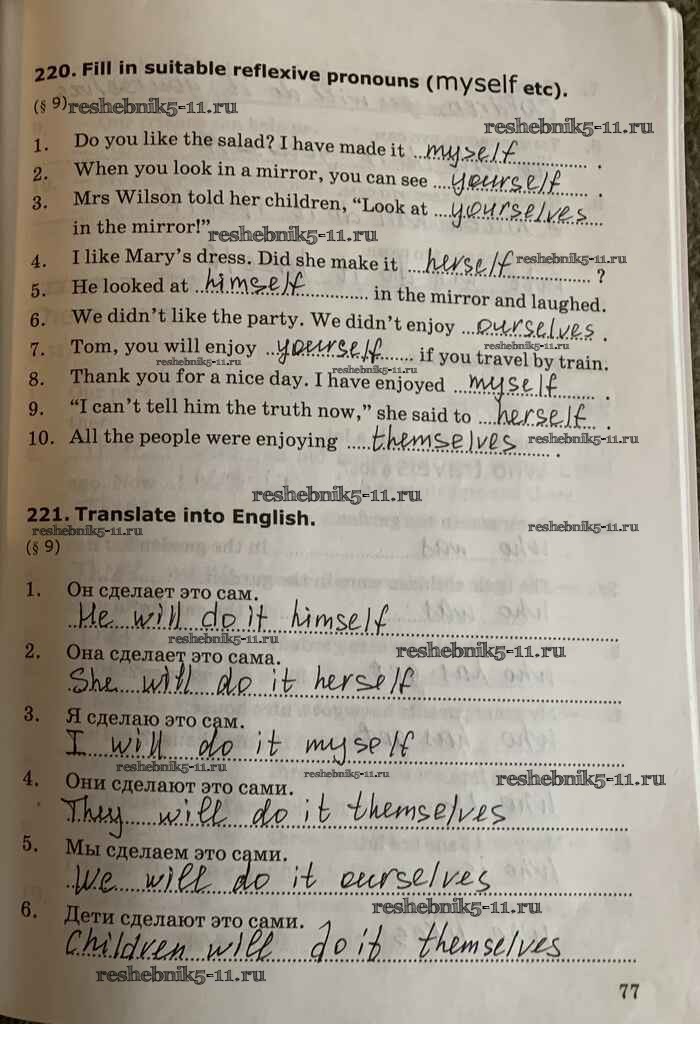 220. Fill in suitable reflexive pronouns (myself etc).
(§ 9) reshebnik5-11.ru
reshebnik5-11.ru
1. Do you like the salad? I have made it myself .
2. When you look in a mirror, you can see yourself .
3. Mrs Wilson told her children, “Look at yourselves
in the mirror!”
reshebnik5-11.ru
4. I like Mary’s dress. Did she make it herself ?
reshebnik5-11.ru
5. He looked at himself in the mirror and laughed.
6. We didn’t like the party. We didn’t enjoy ourselves .
reshebnik5-11.ru
7. Tom, you will enjoy yourself if you travel by train.
reshebnik5-11.ru
reshebnik5-11.ru
8. Thank you for a nice day. I have enjoyed myself .
9. “I can’t tell him the truth now,” she said to herself .
10. All the people were enjoying themselves .
reshebnik5-11.ru
reshebnik5-11.ru
221. Translate into English.
reshebnik5-11.ru
reshebnik5-11.ru
(§ 9)
1. Он сделает это сам.
He will do it himself
reshebnik5-11.ru
reshebnik5-11.ru
2. Она сделает это сама.
She will do it herself
3. Я сделаю это сам.
I will do it myself
reshebnik5-11.ru
reshebnik5-11.ru
reshebnik5-11.ru
4. Они сделают это сами.
They will do it themselves
5. Мы сделаем это сами.
We will do it ourselves
reshebnik5-11.ru
6. Дети сделают это сами.
Children will do it themselves
reshebnik5-11.ru
77